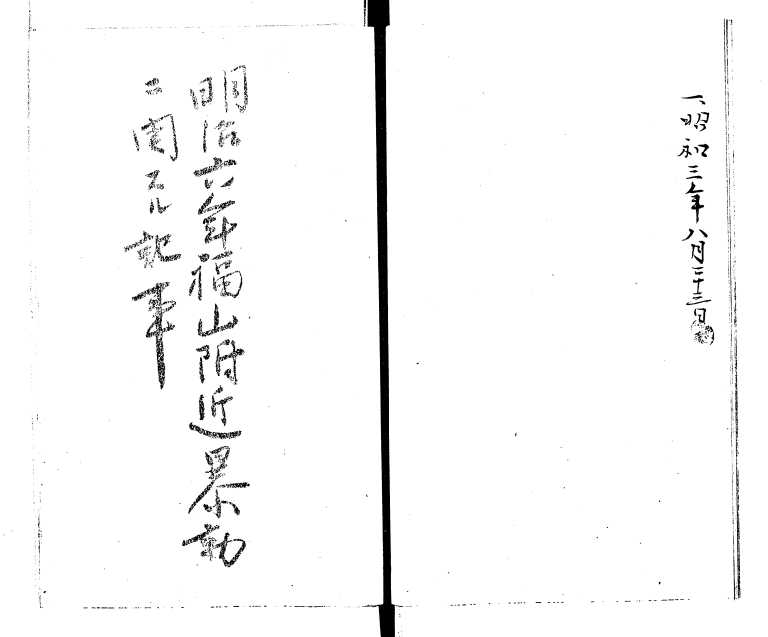 一、昭和三年八月二十三日
明治六年福山附近暴動
ニ関スル記事